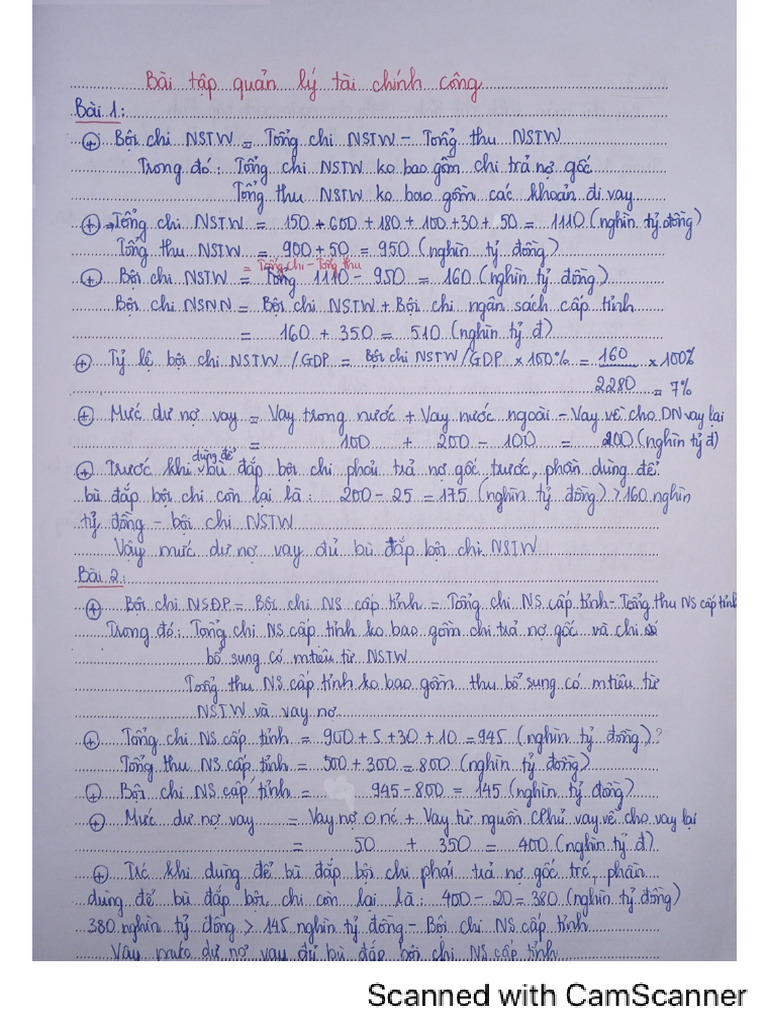 Bài tập quản lý tài chính công
Bài 1:
+ Bội chi NSTW = Tổng chi NSTW - Tổng thu NSTW
Trong đó: Tổng chi NSTW ko bao gồm chi trả nợ gốc
Tổng thu NSTW ko bao gồm các khoản đi vay
+ → Tổng chi NSTW = 150 + 600 + 180 + 100 + 30 + 50 = 1110 (nghìn tỷ đồng)
Tổng thu NSTW = 900 + 50 = 950 (nghìn tỷ đồng)
= Tổng chi - Tổng thu
+ Bội chi NSTW = Tổng 1110 - 950 = 160 (nghìn tỷ đồng)
Bội chi NSNN = Bội chi NSTW + Bội chi ngân sách cấp tỉnh
= 160 + 350 = 510 (nghìn tỷ đ)
+ Tỷ lệ bội chi NSTW/GDP = Bội chi NSTW/GDP x 100% = 160 x 100%
2280 = 7%
+ Mức dư nợ vay = Vay trong nước + Vay nước ngoài - Vay về cho DN vay lại
= 100 + 200 - 100 = 200 (nghìn tỷ đ)
+ Trước khi dùng để bù đắp bội chi phải trả nợ gốc trước, phần dùng để
bù đắp bội chi còn lại là: 200 - 25 = 175 (nghìn tỷ đồng) > 160 nghìn
tỷ đồng - bội chi NSTW
Vậy mức dư nợ vay đủ bù đắp bội chi NSTW
Bài 2:
+ Bội chi NSĐP = Bội chi NS cấp tỉnh = Tổng chi NS cấp tỉnh - Tổng thu NS cấp tỉnh
Trong đó: Tổng chi NS cấp tỉnh ko bao gồm chi trả nợ gốc và chi
bổ sung có mtiêu từ NSTW
Tổng thu NS cấp tỉnh ko bao gồm thu bổ sung có mtiêu từ
NSTW và vay nợ
+ Tổng chi NS cấp tỉnh = 900 + 5 + 30 + 10 = 945 (nghìn tỷ đồng)?
Tổng thu NS cấp tỉnh = 500 + 300 = 800 (nghìn tỷ đồng)
+ Bội chi NS cấp tỉnh = 945 - 800 = 145 (nghìn tỷ đồng)
+ Mức dư nợ vay = Vay nợ nc + Vay từ nguồn CPhủ vay về cho vay lại
= 50 + 350 = 400 (nghìn tỷ đ)
+ Trc khi dùng để bù đắp bội chi phải trả nợ gốc trc, phần
dùng để bù đắp bội chi còn lại là: 400 - 20 = 380 (nghìn tỷ đồng)
380 nghìn tỷ đồng > 145 nghìn tỷ đồng - Bội chi NS cấp tỉnh
Vậy mức dư nợ vay đủ bù đắp bội chi NS cấp tỉnh
Scanned with CamScanner